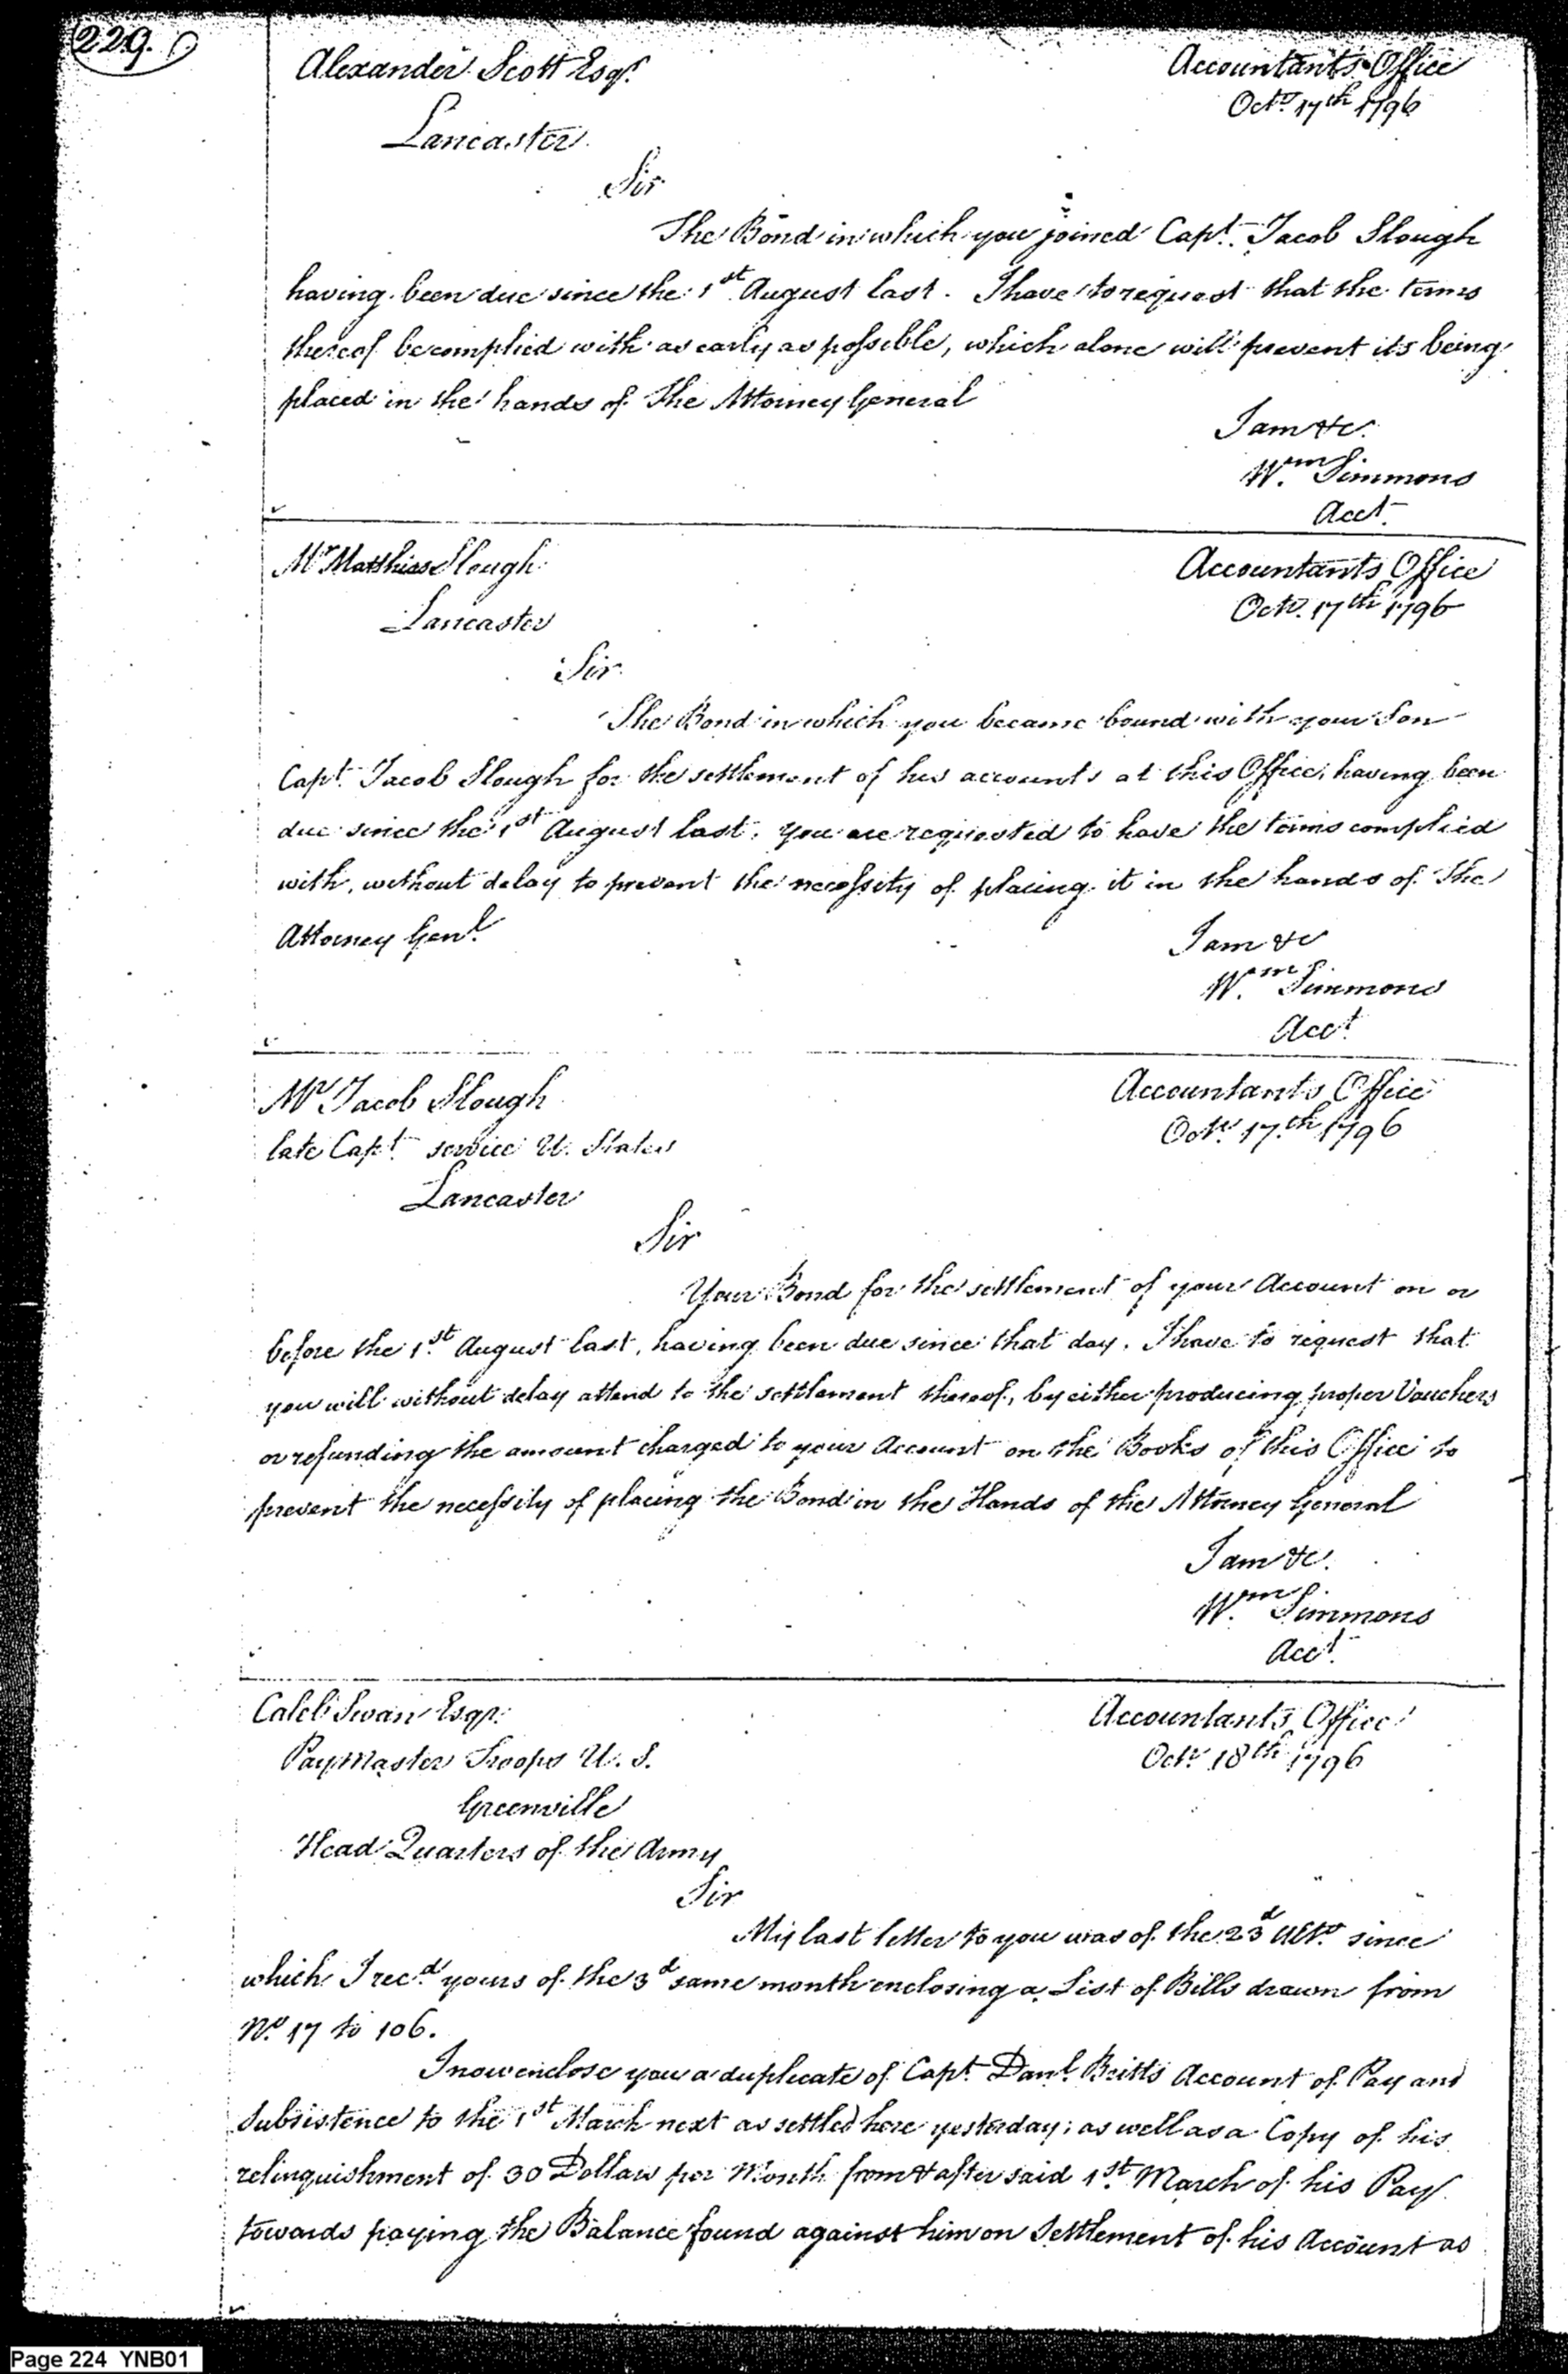 229.
Alexander Scott Esqr.
Accountants Office
Octr. 17th 1796
Lancaster
Sir
The Bond in which you joined Capt. Jacob Slough
having been due since the 1st August last. I have to request that the terms
thereof be complied with as early as possible, which alone will prevent its being
placed in the hands of the Attorney General
I am &c.
Wm. Simmons
Acct.
Mr Matthias Slough
Accountants Office
Octr. 17th 1796
Lancaster
Sir
The Bond in which you became bound with your Son
Capt. Jacob Slough for the settlement of his accounts at this Office, having been
due since the 1st August last. you are requested to have the terms complied
with, without delay to prevent the necessity of placing it in the hands of the
Attorney Genl.
I am &c
Wm. Simmons
Acct.
Mr Jacob Slough
Accountants Office
Octr. 17th 1796
late Capt. service U. States
Lancaster
Sir
Your Bond for the settlement of your Account on or
before the 1st. August last, having been due since that day. I have to request that
you will without delay attend to the settlement thereof, by either producing proper Vouchers
or refunding the amount charged to your Account on the Books of this Office to
prevent the necessity of placing the Bond in the Hands of the Attorney General
I am &c.
Wm. Simmons
Acct.
Caleb Swan Esqr.
Accountants Office
Octr. 18th 1796
PayMaster Troops U.S.
Greenville
Head Quarters of the Army
Sir
My last letter to you was of the 23d Ulto. since
which I recd. yours of the 3d same month enclosing a List of Bills drawn from
No. 17 to 106.
I now enclose you a duplicate of Capt. Danl. Britts Account of Pay and
Subsistence to the 1st March next as settled here yesterday; as well as a Copy of his
relinquishment of 30 Dollars per Month from & after said 1st. March of his Pay
towards paying the Balance found against him on Settlement of his Account as
Page 224 YNB01